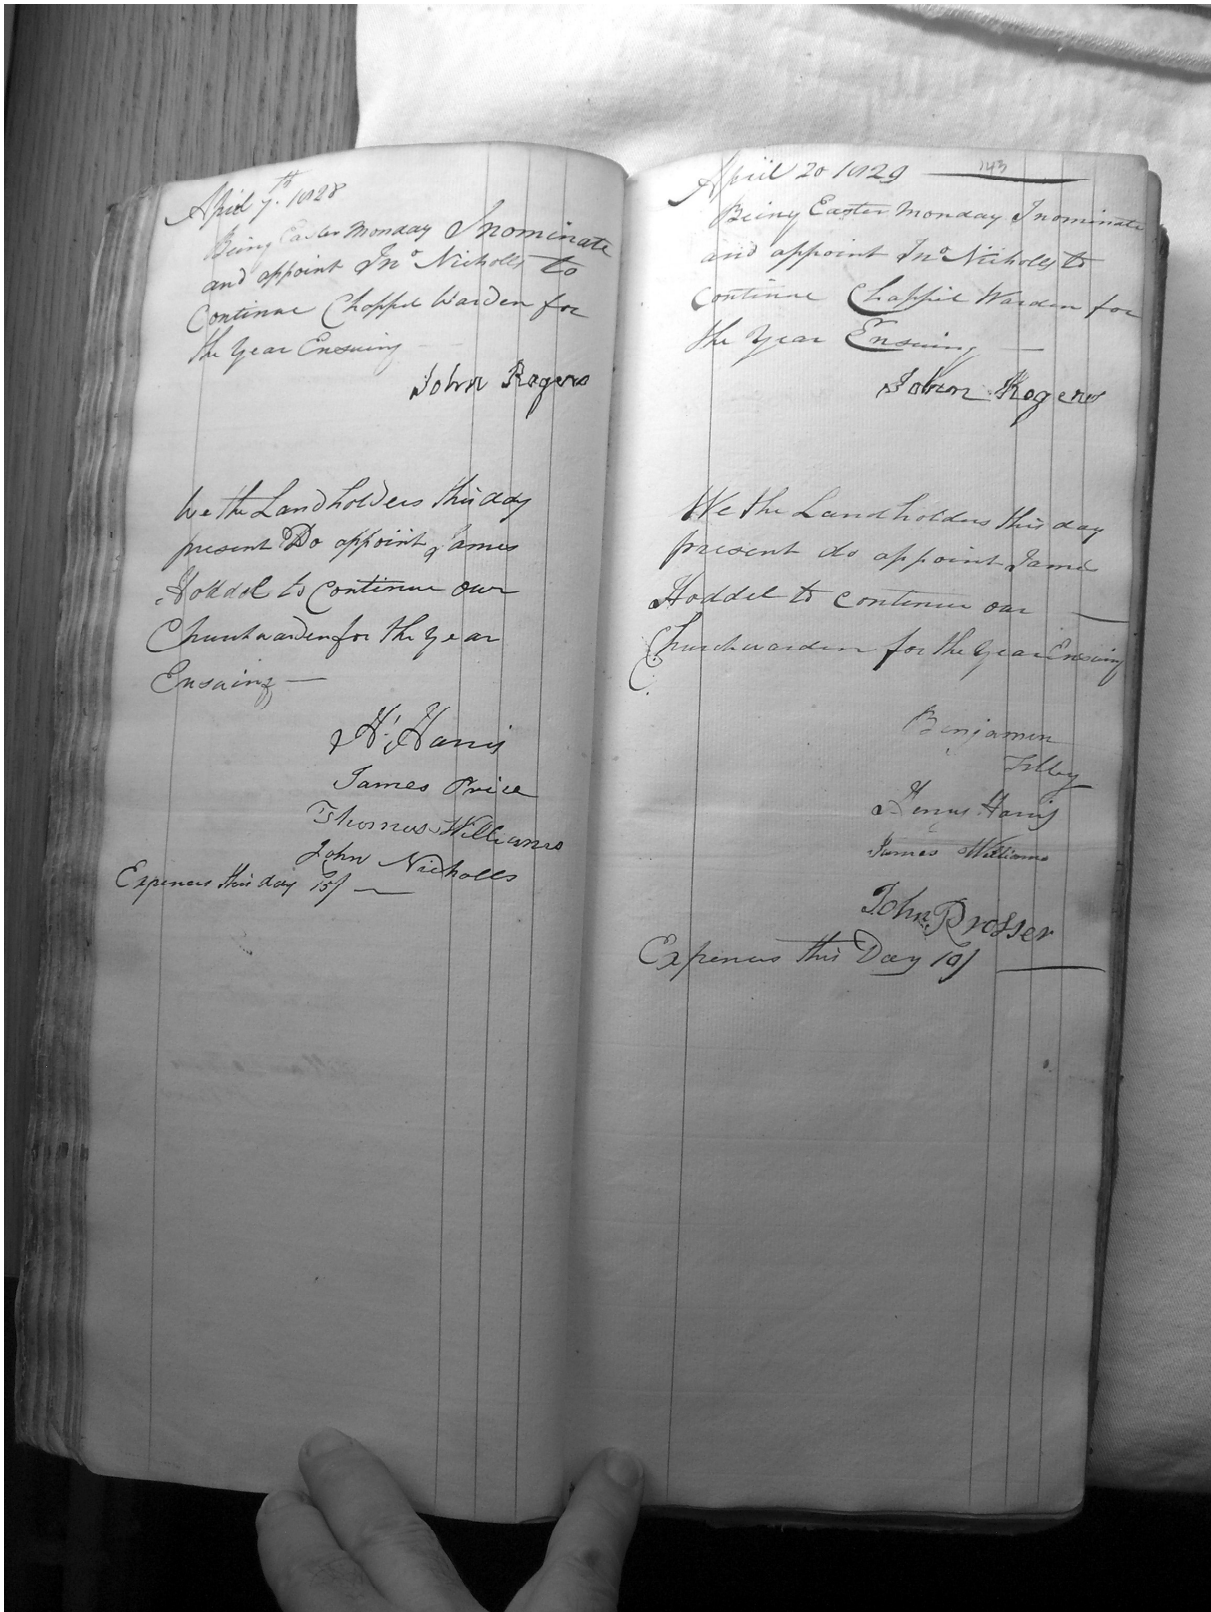 April 7th. 1828
Being Easter Monday I nominate
and appoint Jno Nicholls to
Continue Chappel Warden for
the Year Ensuing
John Rogers
We the Landholders this day
present Do appoint James
Hoddel to Continue our
Churchwarden for the Year
Ensuing
Hy Harris
James Price
Thomas Williams
John Nicholls
Expences this day 15/
143
April 20 1829
Being Easter Monday I nominate
and appoint Jno Nicholls to
Continue Chappel Warden for
the Year Ensuing
John Rogers
We the Landholders this day
present do appoint James
Hoddel to continue our
Churchwarden for the Year Ensuing
Benjamin
Tilby
Henry Harris
James Williams
John Prosser
Expences this Day 10/